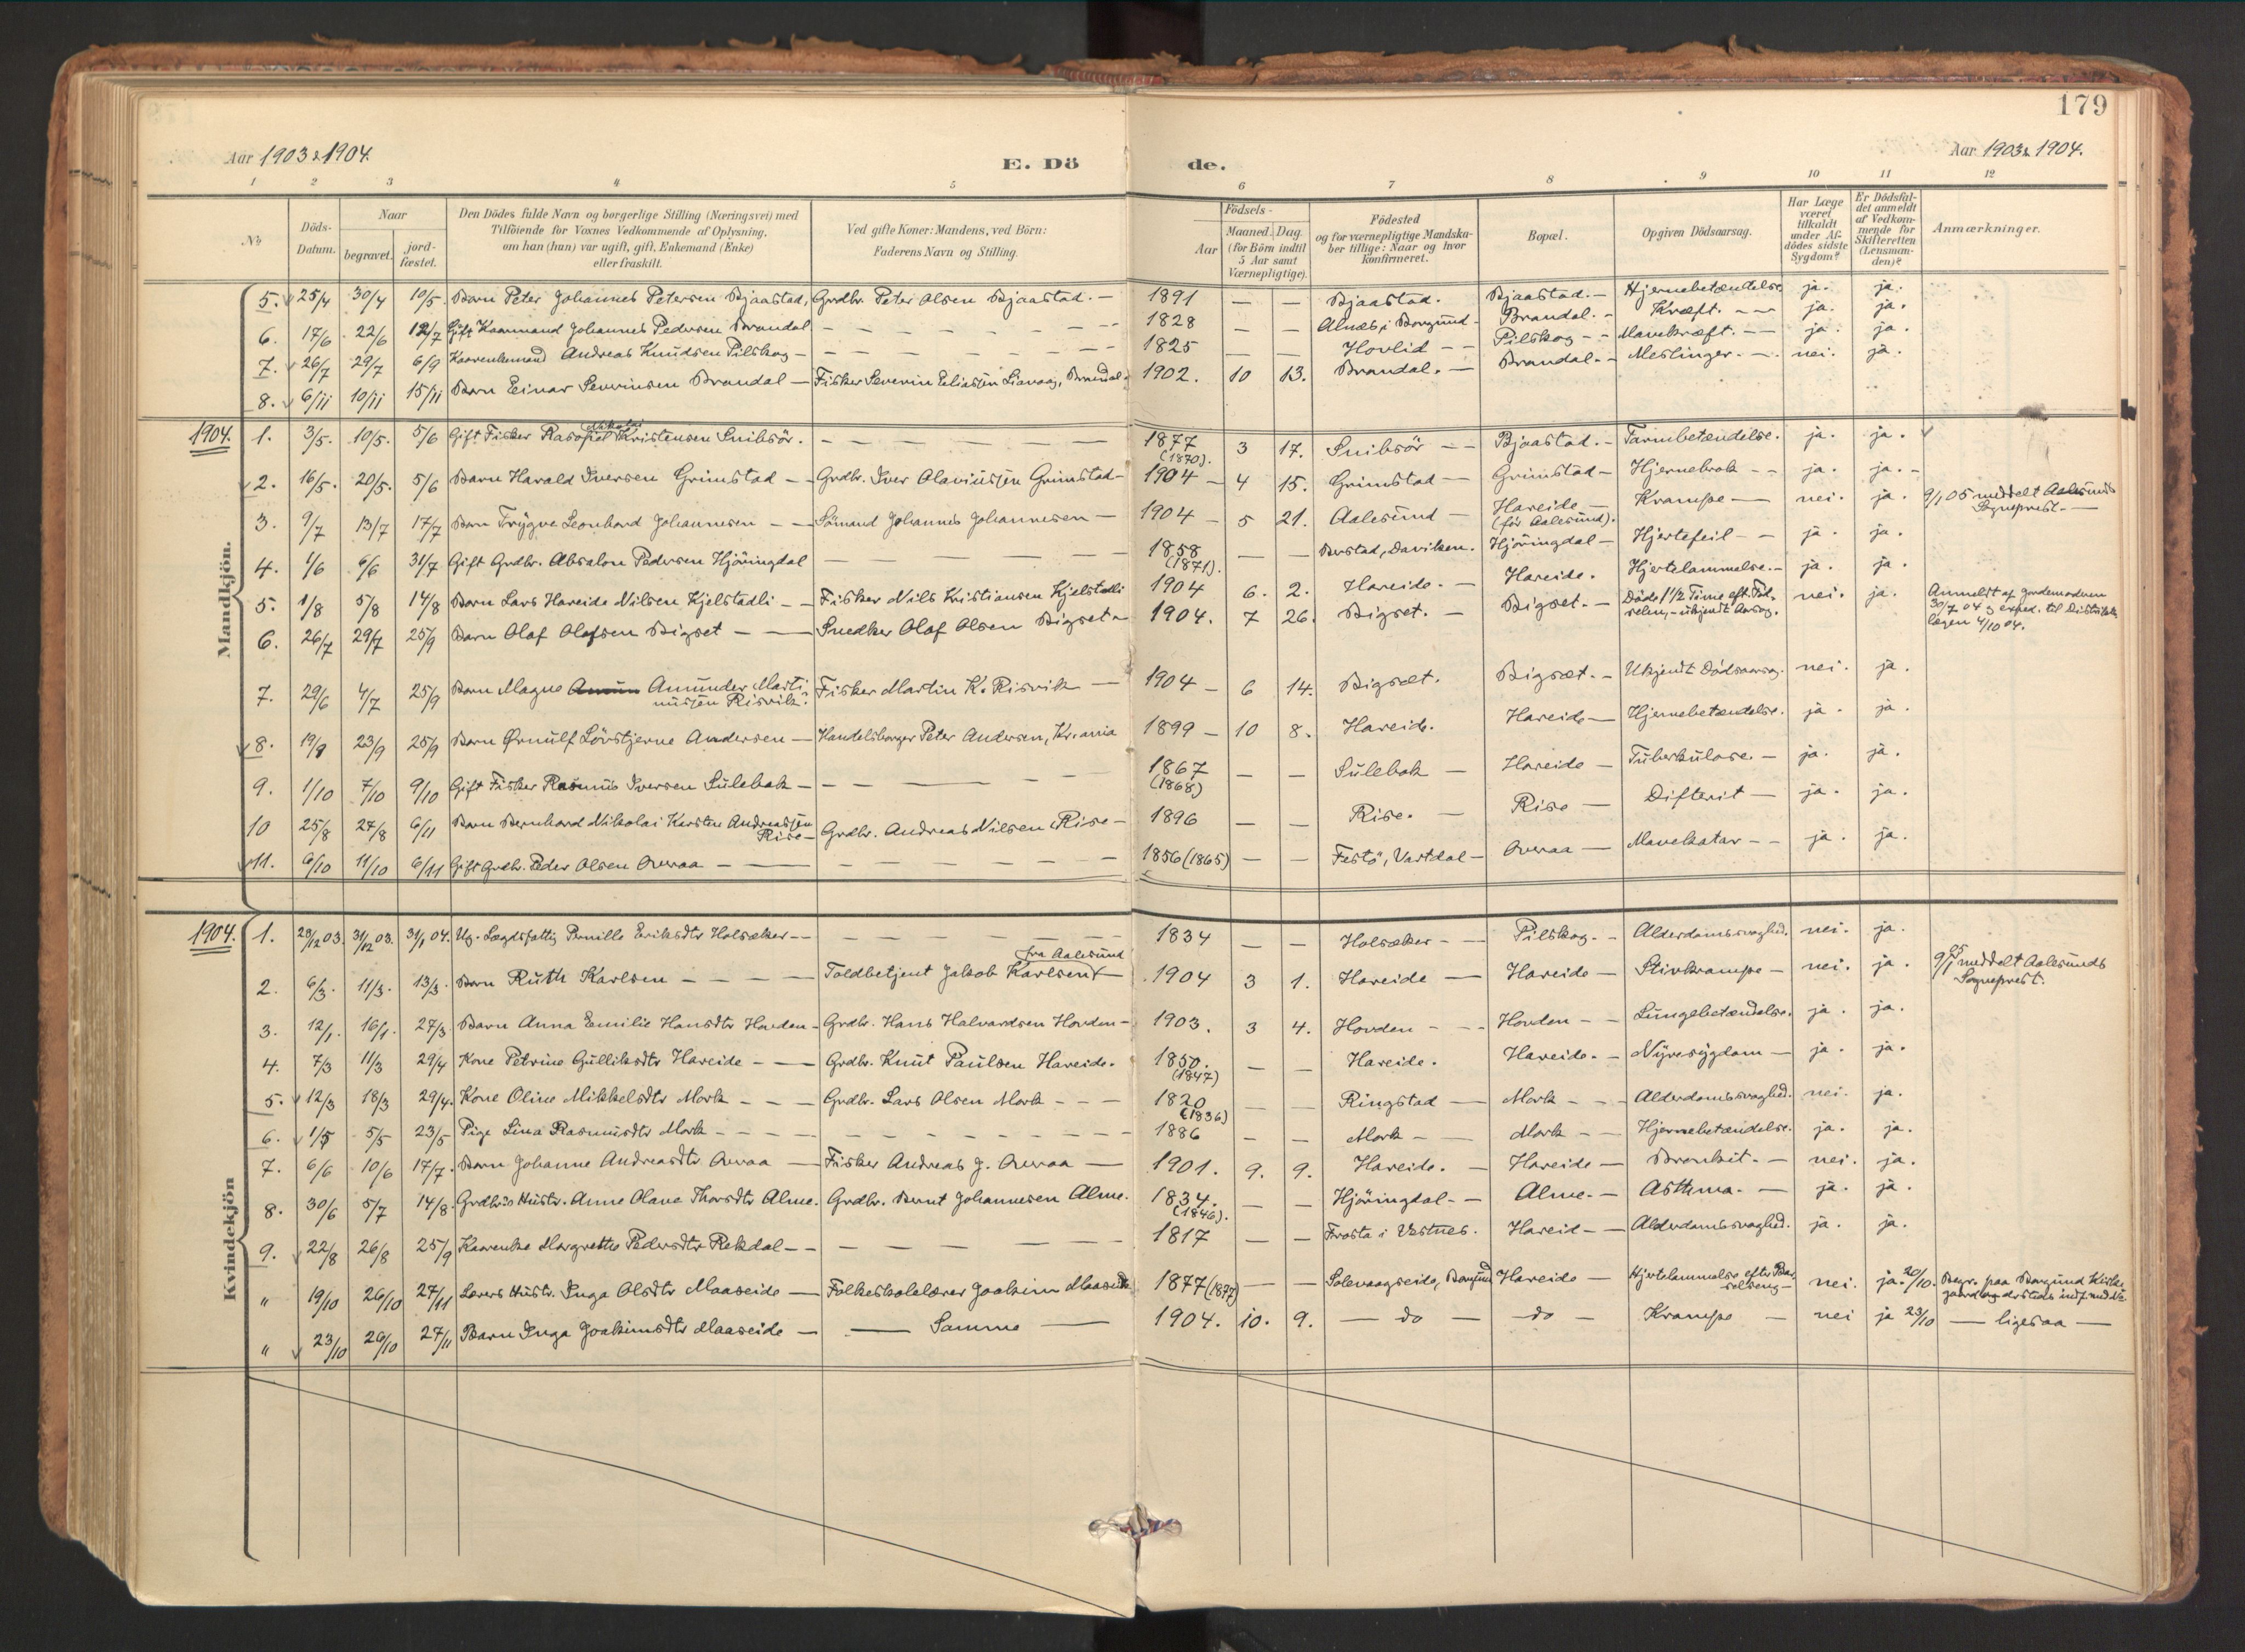 179
Aar 1903 & 1904.
E. Dö
de.
Aar 1903 & 1904.
1 2 3 4 5 6 7 8 9 10 11 12
No
Döds-Datum.
Naar
begravet.
jord-fæstet.
Den Dödes fulde Navn og borgerlige Stilling (Næringsvei) med
Tilföiende for Voxnes Vedkommende af Oplysning,
om han (hun) var ugift, gift, Enkemand (Enke)
eller fraskilt.
Ved gifte Koner: Mandens, ved Börn:
Faderens Navn og Stilling.
Födsels-
Aar
Maaned. Dag.
(for Börn indtil
5 Aar samt
Værnepligtige).
Födested
og for værnepligtige Mandska-
ber tillige: Naar og hvor
konfirmeret.
Bopæl.
Opgiven Dödsaarsag.
Har Læge
været
tilkaldt
under Af-
dödes sidste
Sygdom?
Er Dödsfal-
det anmeldt
af Vedkom-
mende for
Skifteretten
(Lensman-
den)?
Anmærkninger.
Mandkjön.
5. 25/4 30/4 10/5. Barn Peter Johannes Petersen Bjaastad, Grdbr. Peter Olsen Bjaastad. — 1891 — — Bjaastad. Bjaastad. — Hjernebetændelse. ja. ja.
6. 17/6 22/6 12/7 Gift Kaarmand Johannes Pedersen Brandal — 1828 — — Alnæs i Borgund Brandal. — Kræft. — ja. ja.
7. 26/7 29/7 6/9 Andreas Knudsen Pilskog — 1825 — — Hovlid — Pilskog — Mavekræft. — ja. ja.
8. 6/11 10/11 15/11 Barn Einar Severinsen Brandal — Fisker Severin Eliassen Liavaag, Brandal. 1902. 10 13. Brandal. — Brandal. — Meslinger. — nei. ja.
1904. 1. 3/5. 10/5. 5/6 Gift Fisker Rasmus Nikolai Kristensen Snibsör. — 1877 (1870). 3 17. Snibsör — Bjaastad. — Tarmbetændelse. ja. ja.
2. 16/5. 20/5. 5/6 Barn Harald Iversen Grimstad — Grdbr. Iver Olaviussen Grimstad — 1904 — 4 15. Grimstad — Grimstad — Hjernebrok — ja. ja. —
3. 9/7 13/7 17/7 Barn Trygve Leonhard Johannesen — Sömand Johannes Johannesen — 1904 — 5 21. Aalesund — Hareide — (för Aalesund). Krampe — nei. ja. 9/1 05 meddelt Aalesunds Sogneprest. —
4. 1/6 6/6 31/7 Gift Grdbr. Absalon Pedersen Hjöringdal — 1858 (1871). — — Daviken. Hjöringdal — Hjertefeil — ja. ja.
5. 1/8 5/8 14/8 Barn Lars Hareide Nilsen Kjelstadli — Fisker Nils Kristiansen Kjelstadli 1904 6. 2. Hareide. — Hareide. Hjertelammelse. — ja. ja.
6. 26/7 29/7 25/9 Barn Olaf Olafsen Bigset — Snedker Olaf Olsen Bigset — 1904. 7 26. Bigset. — Bigset. — Döde 1 1/2 Time eft. Föd- selen, — ukjendt Aarsag. nei. ja. Anmeldt af gordemoderen 30/7 04 & exped. til Distrikts- lægen 4/10 04.
7. 29/6 4/7 25/9 Barn Magne Amunder Marti- nussen Risvik. Fisker Martin K. Risvik — 1904 — 6 14. Bigset. Bigset. — Ukjendt Dödsaarsag. nei. ja.
8. 19/8 23/9 25/9 Barn Ørnulf Lövstjerne Andersen — Handelsborger Peter Andersen, Kr.ania 1899 — 10 8. Hareide. Hareide — Hjernebetændelse. ja. ja.
9. 1/10 7/10 9/10 Gift Fisker Rasmus Iversen Sulebak — 1867 (1868) — — Sulebak — Hareide — Tuberkulose. — ja. ja.
10 25/8 27/8 6/11 Barn Bernhard Nikolai Karsten Andreassen Rise — Grdbr. Andreas Nilsen Rise — 1896 — — Rise. — Rise — Difterit — ja. ja.
11. 6/10 11/10 6/11 Gift Grdbr. Peder Olsen Overaa — 1856 (1865) — — Festö, Vartdal — Overaa — Mavekatar — ja. ja.
Kvindekjön
1904. 1. 28/12 03. 31/12 03. 31/1 04. Ug. Lægdsfattig Pernille Eriksdtr Holsæker — 1834 — — Holsæker — Pilskog. — Alderdomssvaghed. nei. ja.
2. 6/3. 11/3. 13/3. Barn Ruth Karlsen — Toldbetjent Jakob Karlsen fra Aalesund 1904 3 1. Hareide — Hareide — Stivkrampe — nei. ja. 9/1 05 meddelt Aalesunds Sogneprest.
3. 12/1. 16/1. 27/3. Barn Anna Emilie Hansdtr Hovden — Grdbr. Hans Halvardsen Hovden — 1903. 3 4. Hovden — Hovden — Lungebetændelse. ja. ja.
4. 7/3 11/3 29/4 Kone Petrine Gulliksdtr Hareide — Grdbr. Knut Paulsen Hareide. 1850. (1847) — — Hareide. Hareide. — Nyresygdom — ja. ja.
5. 12/3 18/3 29/4. Kone Oline Mikkelsdtr Mork — Grdbr. Lars Olsen Mork — 1820 (1836) — — Ringstad — Mork — Alderdomssvaghed. nei. ja.
6. 1/5 5/5 23/5 Pige Lina Rasmusdtr Mork — 1886 — — Mork — Mork — Hjernebetændelse. ja. ja.
7. 6/6 10/6 17/7. Barn Johanne Andreasdtr Overaa — Fisker Andreas J. Overaa — 1901. 9. 9. Hareide. — Hareide — Bronkit. — nei. ja.
8. 30/6 5/7 14/8. Grdbr's Hustr. Anne Olane Thorsdtr Alme. Grdbr. Bernt Johannesen Alme. 1834. (1846). — — Hjöringdal — Alme. — Asthma. — ja. ja.
9. 22/8 26/8 25/9 Kaarenke Margrethe Pedersdtr Rekdal — 1817 — — Frosta i Vestnes. Hareid — Alderdomssvaghed. ja. ja.
" 19/10 26/10 27/11 Lærers Hustr. Inga Olsdtr Maaseide — Folkeskolelærer Joakim Maaseide 1877 (1897) — — Solevaagseide, Borgund Hareide — Hjertelammelse efter Bar- selseng — nei. ja. 20/10. Begr. paa Borgund Kirke-
" 23/10 29/10 27/11 Barn Inga Joakimsdtr Maaseide — Samme — 1904. 10. 9. — do — — do — Krampe — nei ja 23/10 — ligesaa —